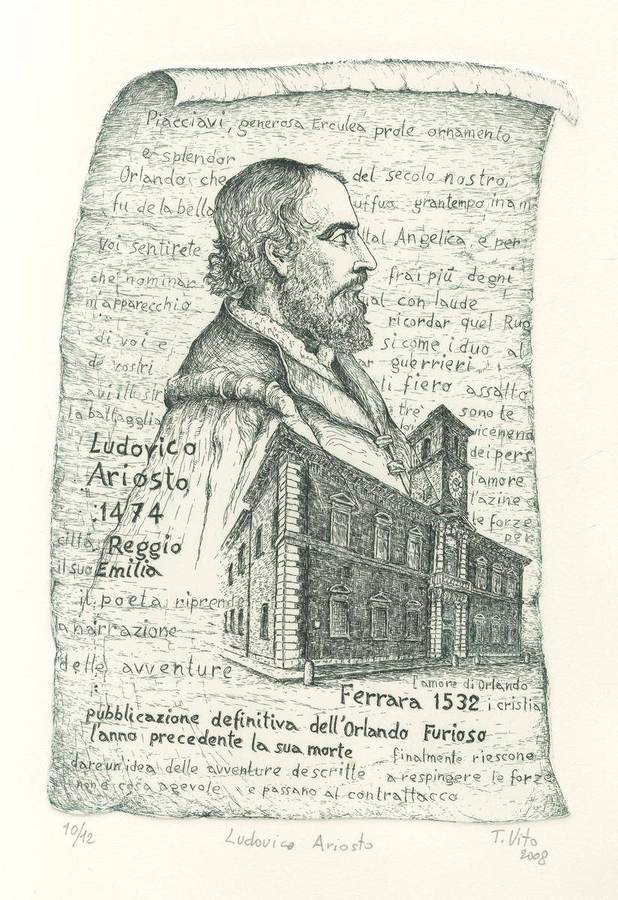 Piacciavi, generosa Erculea prole ornamento
e splendor
Orlando che del secolo nostro,
fu de la bella uffuo grantempo, inam
voi sentirete Angelica, e per
che nominar frai più degni
m'apparecchio con laude
ricordar quel Rug
di voi e si come i duo al
de vostri guerrieri
avi illustri ti fiero assalto
la battaglia tre sono te
vicemend
Ludovico dei pers
Ariosto l'amore
1474 l'azine
le forze
città Reggio per
il suo Emilia
il poeta riprende
la narrazione
delle avventure
l'amore di Orlando
Ferrara 1532 i cristia
pubblicazione definitiva dell'Orlando Furioso
l'anno precedente la sua morte finalmente riescone
dare un idea delle avventure descritte a respingere le forze
non è cosa agevole e passano al contrattacco
10/12 Ludovico Ariosto T. Vito
2008